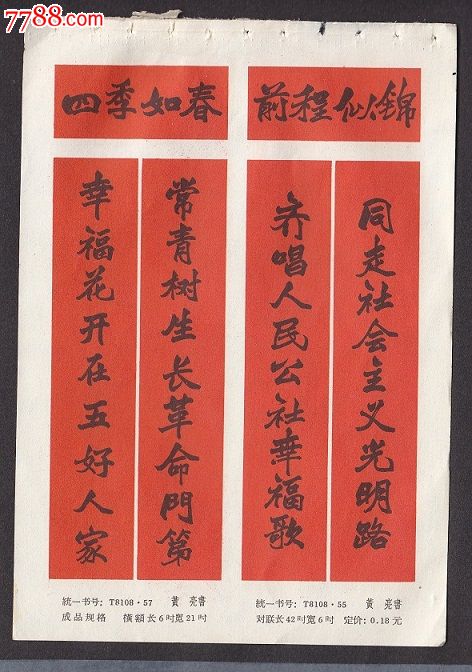 7788.com
四季如春
前程似锦
常青树生长革命門第
幸福花开在五好人家
同走社会主义光明路
齐唱人民公社幸福歌
統一书号：T8108·57 黄亮書
成品规格 横額长6吋宽21吋
統一书号：T8108·55 黄亮書
对联长42吋宽6吋 定价：0.18元